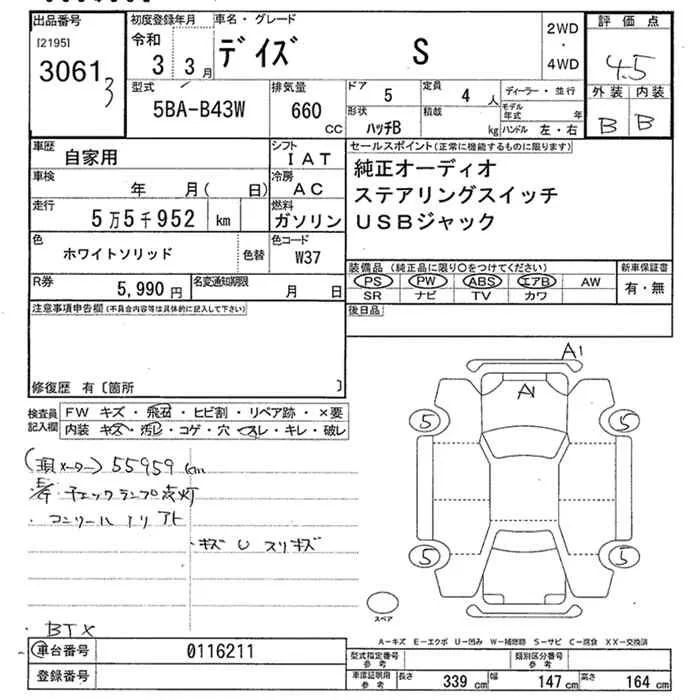 出品番号
[2195]
3061
3
初度登録年月
令和
3 3月
車名・グレード
デイズ S
2WD
・
4WD
評価点
4.5
外装 内装
B B
型式
5BA-B43W
排気量
660
CC
ドア
5
定員
4 人
形状
ハッチB
積載
kg
ディーラー・並行
モデル年式 年
ハンドル 左・右
車歴
自家用
シフト
IAT
車検
年 月( 日)
冷房
AC
走行
5万5千952 km
燃料
ガソリン
色
ホワイトソリッド
色替
色コード
W37
R券
5,990円
名変通知期限
月 日
セールスポイント(正常に機能するものに限ります)
純正オーディオ
ステアリングスイッチ
USBジャック
装備品(純正品に限り○をつけてください)
PS PW ABS エアB AW
SR ナビ TV カワ
新車保証書
有・無
後日品
注意事項申告欄(不具合内容等は具体的に記入して下さい)
修復歴 有〔箇所 〕
検査員記入欄
FW キズ・飛石・ヒビ割・リペア跡・×要
内装 キズ・汚レ・コゲ・穴・スレ・キレ・破レ
(現メーター) 55959km
チェックランプ点灯
・キズ U スリキズ
・BTX
A1
A1
5 5
5 5
スペア
A-キズ E-エクボ U-凹み W-補修跡 S-サビ C-腐食 XX-交換済
車台番号
0116211
登録番号
型式指定番号
参考
類別区分番号
参考
車庫証明用
参考
長さ 339 cm 幅 147 cm 高さ 164 cm